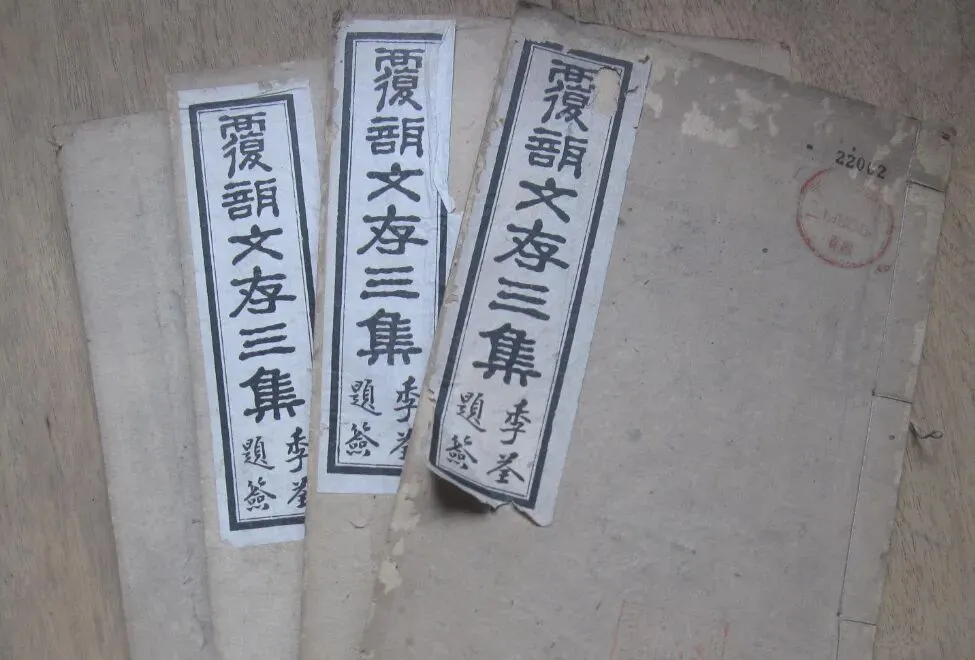 覆瓿文存三集
季荃
題簽
覆瓿文存三集
季荃
題簽
覆瓿文存三集
季荃
題簽